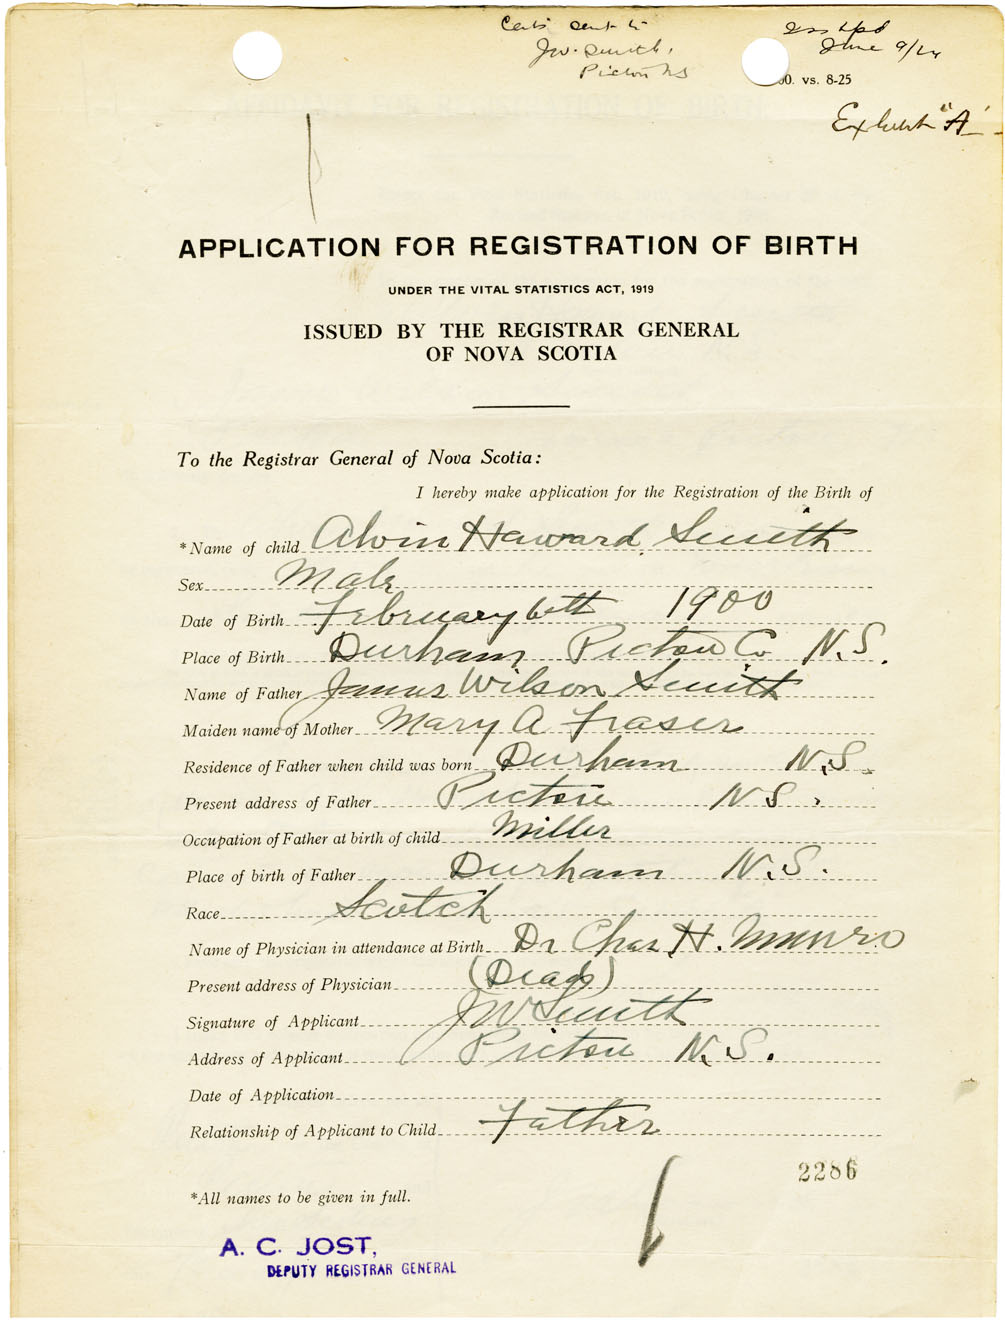 Certi sent to
J.W. Smith,
Pictou NS
June 9/26
00. vs. 8-25
Exhibit "A"
APPLICATION FOR REGISTRATION OF BIRTH
UNDER THE VITAL STATISTICS ACT, 1919
ISSUED BY THE REGISTRAR GENERAL
OF NOVA SCOTIA
To the Registrar General of Nova Scotia:
I hereby make application for the Registration of the Birth of
*Name of child Alvin Haward Smith
Sex Male
Date of Birth February 6th 1900
Place of Birth Durham Pictou Co N.S.
Name of Father James Wilson Smith
Maiden name of Mother Mary A Fraser
Residence of Father when child was born Durham N.S.
Present address of Father Pictou N S.
Occupation of Father at birth of child Miller
Place of birth of Father Durham N.S.
Race Scotch
Name of Physician in attendance at Birth Dr Chas H. Munro
Present address of Physician (Dead)
Signature of Applicant J W Smith
Address of Applicant Pictou N.S.
Date of Application
Relationship of Applicant to Child Father
2286
*All names to be given in full.
A. C. JOST,
DEPUTY REGISTRAR GENERAL